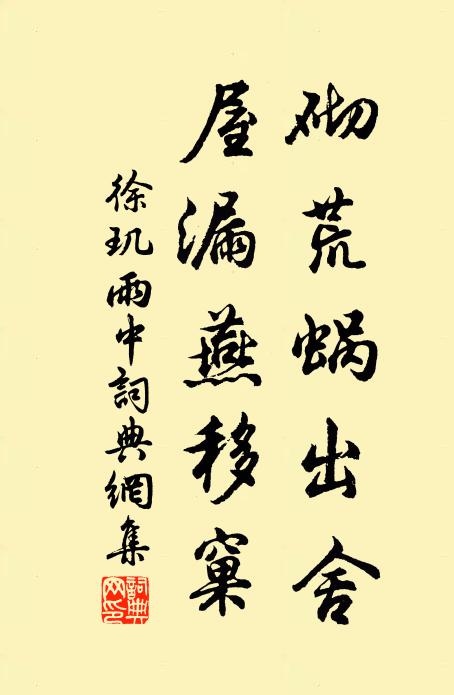 砌荒蜗出舍
屋漏燕移窠
徐玑雨中詞典網集
詞典网印